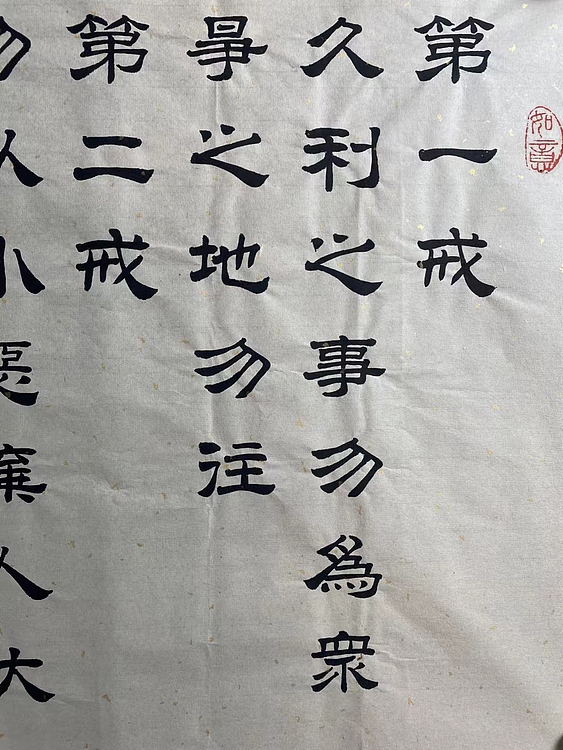 如意
第一戒
久利之事勿爲衆
爭之地勿往
第二戒
勿以小惡棄人大